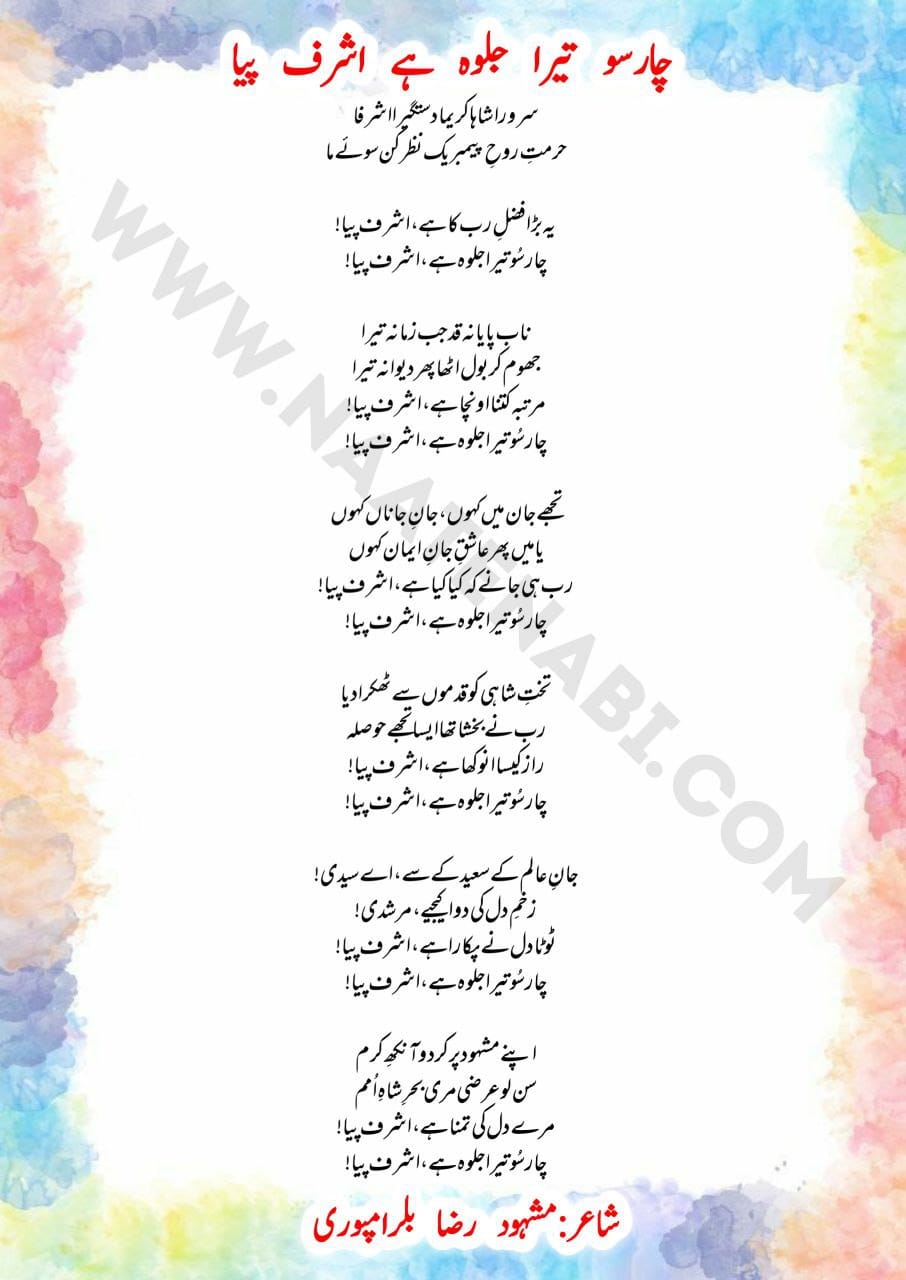 چارسو تیرا جلوہ ہے اشرف پیا
سرورا شاہا کریما دستگیرا اشرفا
حرمتِ روحِ پیمبر یک نظر کن سوئے ما
یہ بڑا فضلِ رب کا ہے، اشرف پیا!
چار سُو تیرا جلوہ ہے، اشرف پیا!
ناب پایا نہ قد جب زمانہ تیرا
جھوم کر بول اٹھا پھر دیوانہ تیرا
مرتبہ کتنا اونچا ہے، اشرف پیا!
چار سُو تیرا جلوہ ہے، اشرف پیا!
تجھے جان میں کہوں، جانِ جاناں کہوں
یا میں پھر عاشقِ جانِ ایمان کہوں
رب ہی جانے کہ کیا کیا ہے، اشرف پیا!
چار سُو تیرا جلوہ ہے، اشرف پیا!
تختِ شاہی کو قدموں سے ٹھکرا دیا
رب نے بخشا تھا ایسا تجھے حوصلہ
راز کیسا انوکھا ہے، اشرف پیا!
چار سُو تیرا جلوہ ہے، اشرف پیا!
جانِ عالم کے سعید کے سے، اے سیدی!
زخمِ دل کی دوا کیجیے، مرشدی!
ٹوٹا دل نے پکارا ہے، اشرف پیا!
چار سُو تیرا جلوہ ہے، اشرف پیا!
اپنے مشہود پر کر دو آنکھِ کرم
سن لو عرضی مری بحرِ شاہِ اُمم
مرے دل کی تمنا ہے، اشرف پیا!
چار سُو تیرا جلوہ ہے، اشرف پیا!
شاعر: مشہود رضا بلرامپوری
WWW.NAATENABI.COM